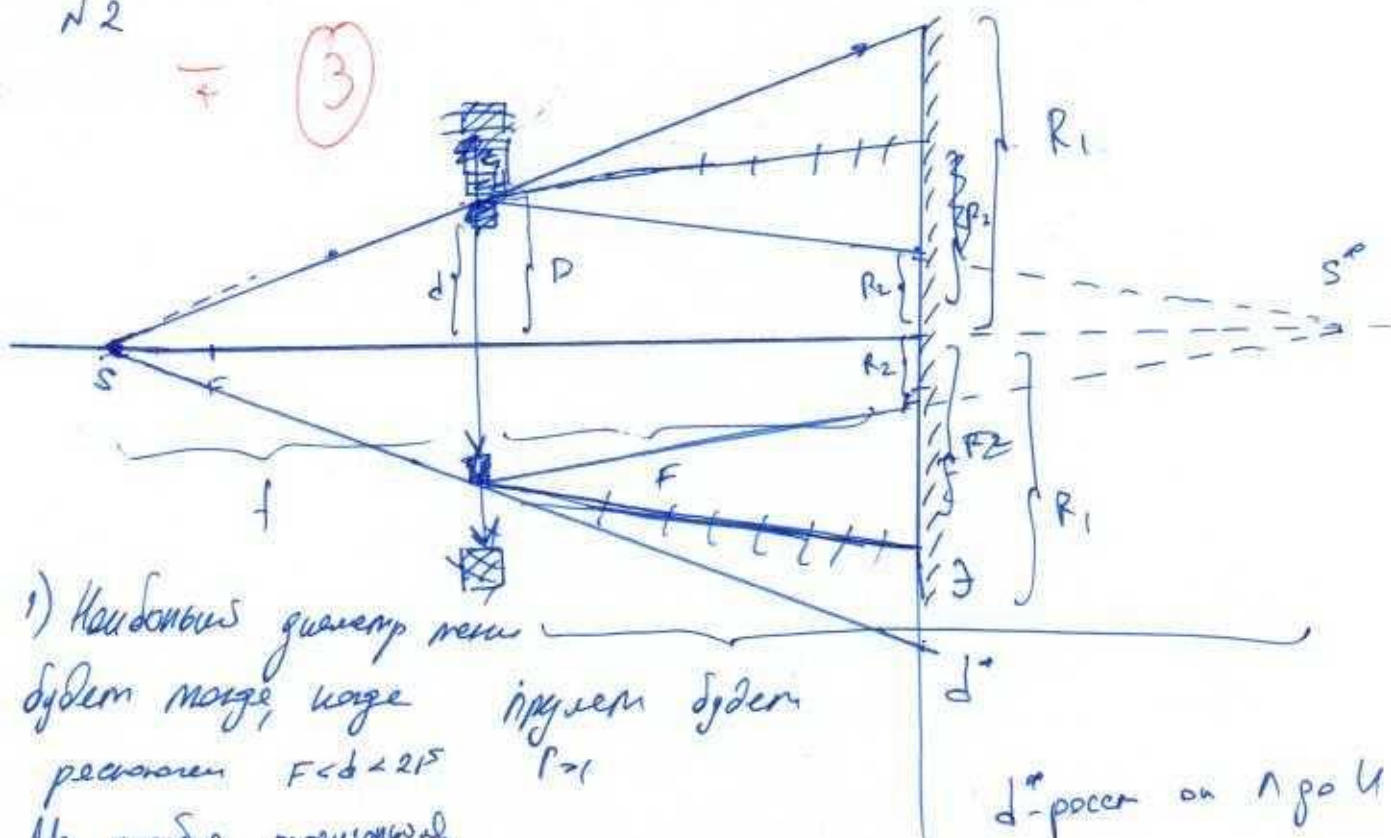 N2
3
R₁
d
D
R₂
R₂
S*
S
F
R₂
F
f
R₁
Э
1) Наибольший диаметр тени
d*
будет тогда, когда предмет будет
расположен F<d<2F Г>1
d*-расст от Л до И